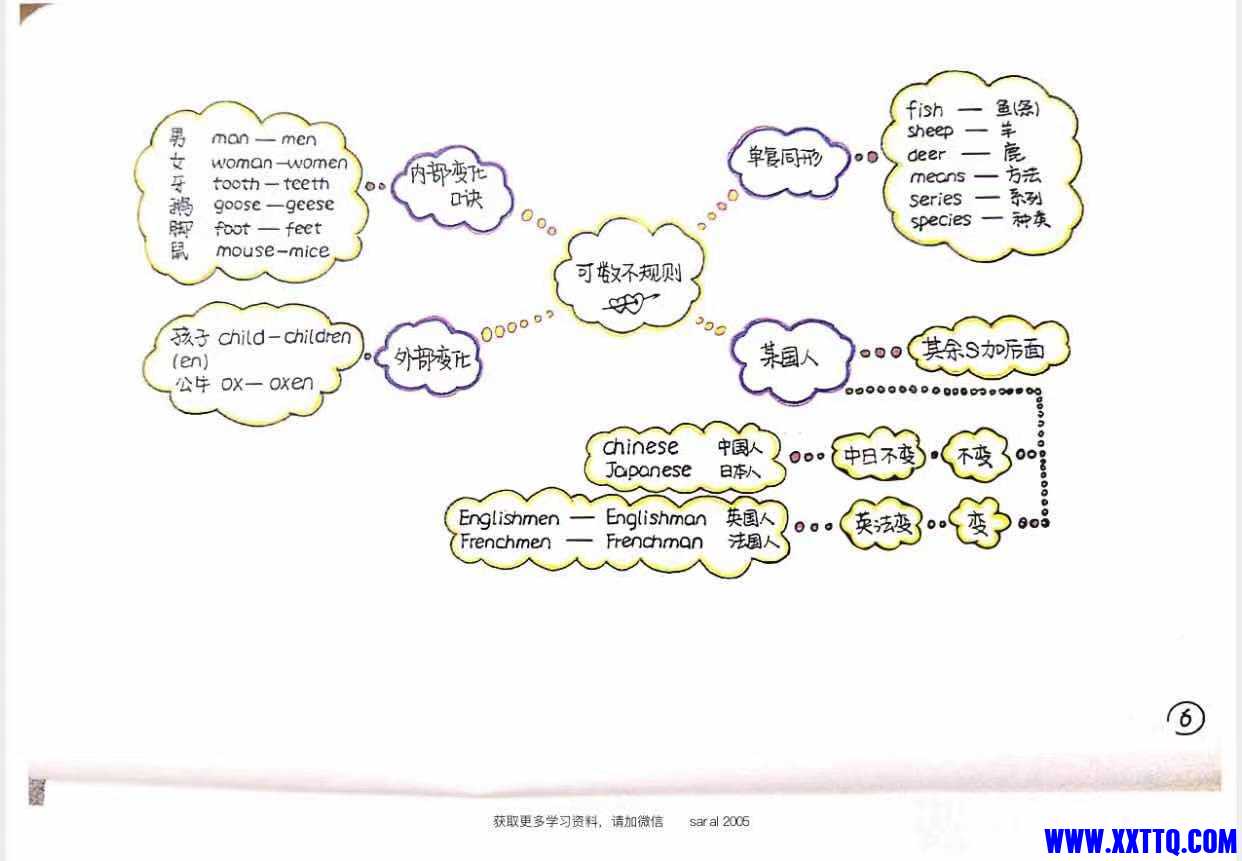 可数不规则
内部变化
口诀
男 man — men
女 woman — women
牙 tooth — teeth
鹅 goose — geese
脚 foot — feet
鼠 mouse — mice
外部变化
孩子 child — children
(en)
公牛 ox — oxen
单复同形
fish — 鱼(条)
sheep — 羊
deer — 鹿
means — 方法
series — 系列
species — 种类
某国人
其余S加后面
不变
中日不变
chinese 中国人
Japanese 日本人
变
英法变
Englishmen — Englishman 英国人
Frenchmen — Frenchman 法国人
6
获取更多学习资料，请加微信 saral 2005
WWW.XXTTQ.COM